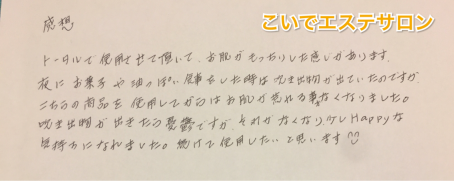 こいでエステサロン
感想
トータルで使用させて頂いて、お肌がもっちりした感じがあります。
夜にお菓子や油っぽい食事をした時は吹き出物が出ていたのですが
こちらの商品を使用してからはお肌が荒れる事なくなりました。
吹き出物が出きたら憂鬱ですが、それがなくなり少しHappyな
気持ちになれました。続けて使用したいと思います